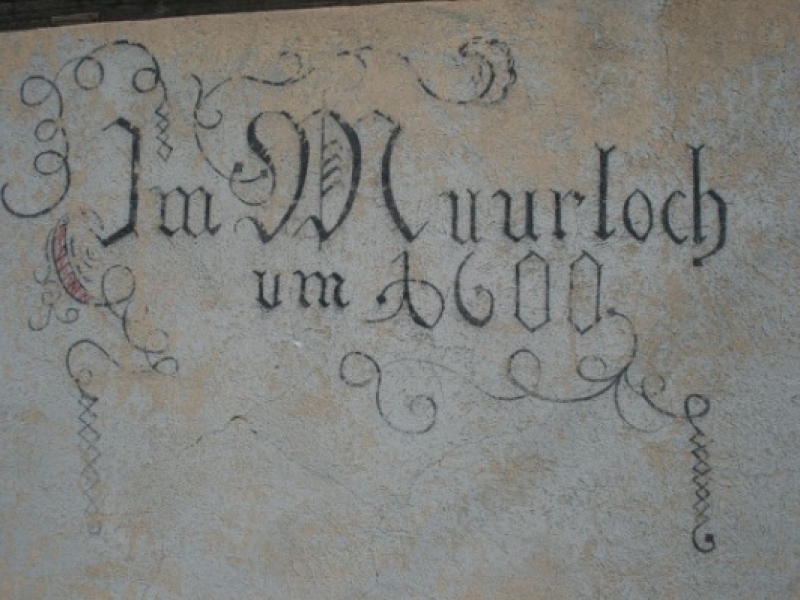 Im Muurloch
um 1600